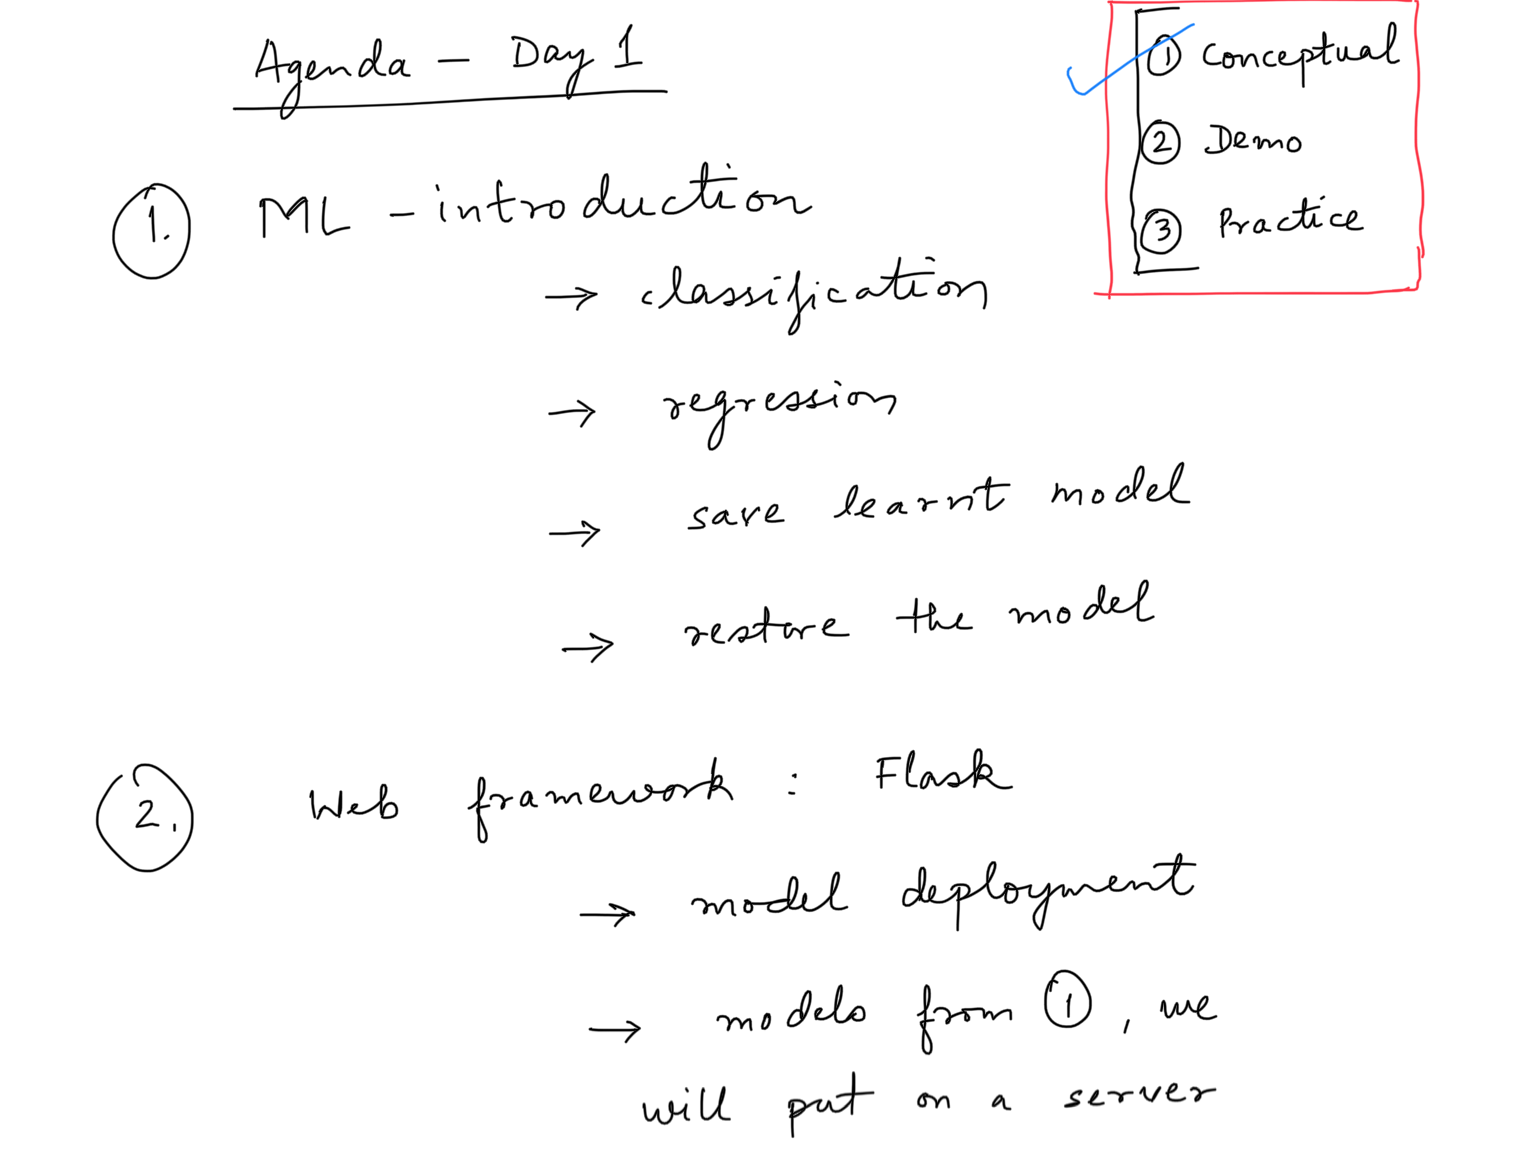 Agenda - Day 1
① Conceptual
② Demo
③ Practice
1. ML - introduction
→ classification
→ regression
→ save learnt model
→ restore the model
2. Web framework : Flask
→ model deployment
→ models from ①, we
will put on a server